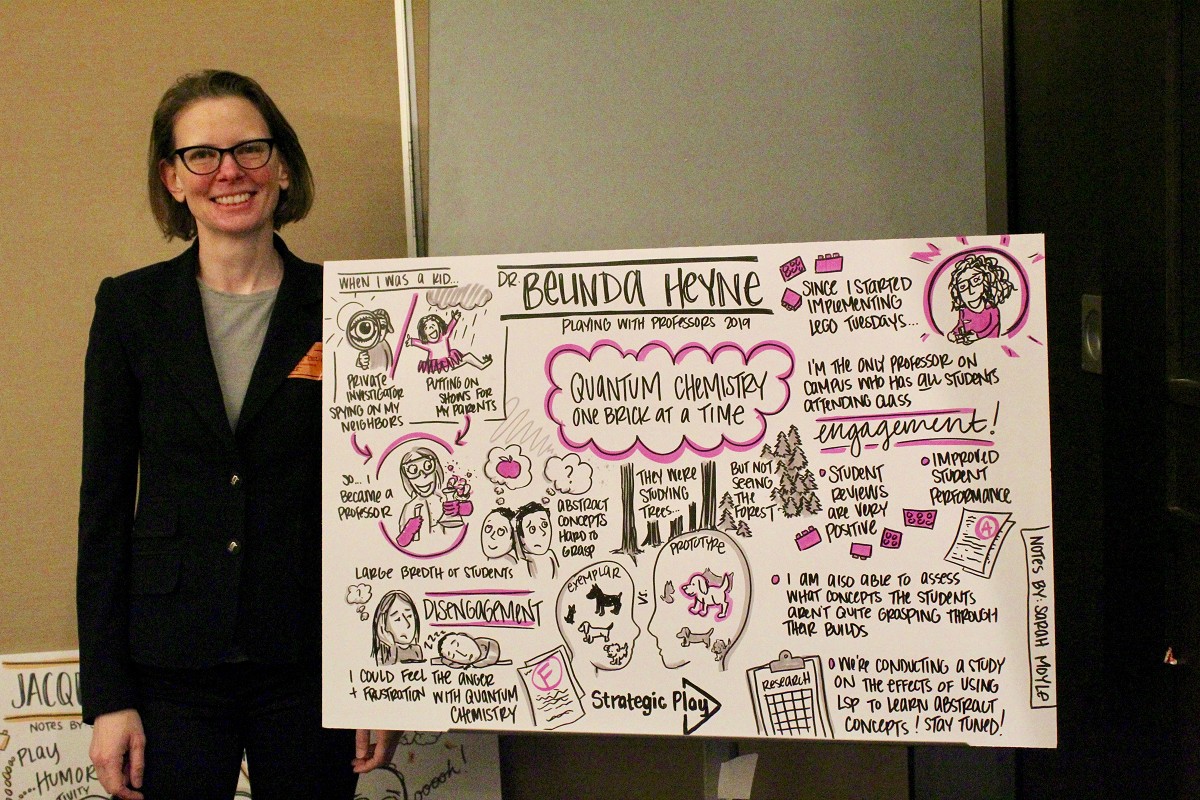 WHEN I WAS A KID...
PRIVATE
INVESTIGATOR
SPYING ON MY
NEIGHBORS
PUTTING ON
SHOWS FOR
MY PARENTS
SO... I
BECAME A
PROFESSOR
LARGE BREDTH OF STUDENTS
?
DISENGAGEMENT
ZZZ
I COULD FEEL THE ANGER
+ FRUSTRATION WITH QUANTUM
CHEMISTRY
F
DR. BELINDA HEYNE
PLAYING WITH PROFESSORS 2019
QUANTUM CHEMISTRY
ONE BRICK AT A TIME
?
ABSTRACT
CONCEPTS
HARD TO
GRASP
THEY WERE
STUDYING
TREES...
BUT NOT
SEEING
THE
FOREST
EXEMPLAR
VS.
PROTOTYPE
Strategic Play
SINCE I STARTED
IMPLEMENTING
LEGO TUESDAYS...
I'M THE ONLY PROFESSOR ON
CAMPUS WHO HAS ALL STUDENTS
ATTENDING CLASS
engagement!
• STUDENT
REVIEWS
ARE VERY
POSITIVE
• IMPROVED
STUDENT
PERFORMANCE
A
• I AM ALSO ABLE TO ASSESS
WHAT CONCEPTS THE STUDENTS
AREN'T QUITE GRASPING THROUGH
THEIR BUILDS
RESEARCH
• WE'RE CONDUCTING A STUDY
ON THE EFFECTS OF USING
LSP TO LEARN ABSTRACT
CONCEPTS! STAY TUNED!
NOTES BY: SARAH MOYLE
JACQU
NOTES BY
PLAY
...HUMOR
oooh!